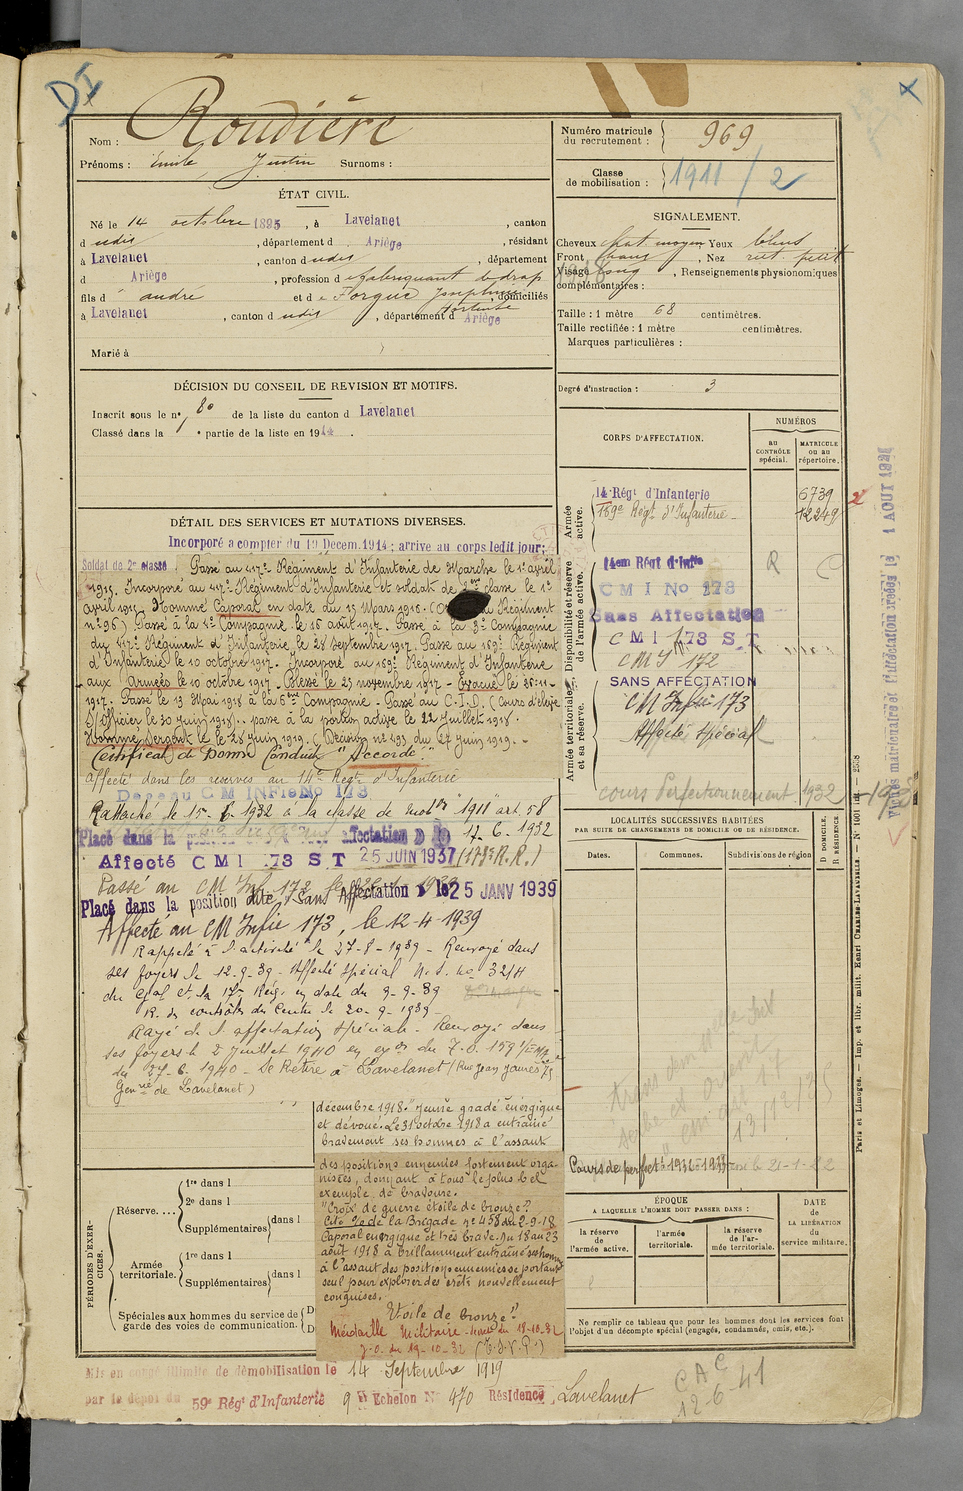 DI
X
Nom : Roudière
Prénoms : Emile Justin Surnoms :
Numéro matricule du recrutement : 969
Classe de mobilisation : 1911 / 2
ÉTAT CIVIL.
Né le 14 octobre 1895, à Lavelanet, canton
dudit, département d Ariège, résidant
à Lavelanet, canton dudit, département
d Ariège, profession de fabriquant de drap
fils d' andré et de Forgue Josephine Hortense, domiciliés
à Lavelanet, canton dudit, département d Ariège
Marié à
SIGNALEMENT.
Cheveux chat. moyen Yeux bleus
Front, Nez rect. petit
Visage long, Renseignements physionomiques
complémentaires :
Taille : 1 mètre 68 centimètres.
Taille rectifiée : 1 mètre centimètres.
Marques particulières :
Degré d'instruction : 3
DÉCISION DU CONSEIL DE REVISION ET MOTIFS.
Inscrit sous le n° 80 de la liste du canton d Lavelanet
Classé dans la ° partie de la liste en 1914.
CORPS D'AFFECTATION.
NUMÉROS
au CONTRÔLE spécial.
MATRICULE ou au répertoire.
Armée active.
14 Régt d'Infanterie 6739
159e Régt d'Infanterie 12249
Disponibilité et réserve de l'armée active.
14em Régt d'Infie R
C M I No 173
Sans Affectation
C M I 173 S T
C M I 172
Armée territoriale et sa réserve.
SANS AFFECTATION
CM Infie 173
Affecté spécial
cours Perfectionnement 1932-1933
DÉTAIL DES SERVICES ET MUTATIONS DIVERSES.
Incorporé a compter du 19 Décem. 1914; arrive au corps ledit jour;
Soldat de 2e classe. Passé au 417e Régiment d'Infanterie de Marche le 1er avril
1915. Incorporé au 417e Régiment d'Infanterie et soldat de 2eme classe le 1er
avril 1915. Nommé Caporal en date du 15 Mars 1916. (O du Régiment
n° 96) Passé à la 4e Compagnie le 16 août 1917. Passé à la 3e Compagnie
du 417e Régiment d'Infanterie le 28 septembre 1917. Passé au 159e Régiment
d'Infanterie le 10 octobre 1917. Incorporé au 159e Régiment d'Infanterie
aux Armées le 10 octobre 1917. Blessé le 25 novembre 1917 - Evacué le 25-11-
1917. Passé le 13 Mai 1918 à la 6eme Compagnie. Passé au C.I.D. (Cours d'élève
Officier le 30 juin 1918). passé à la portion active le 22 Juillet 1918.
Nommé Sergent le 28 juin 1919. (Décision n° 493 du 27 juin 1919. -
Certificat de Bonne Conduite "Accordé"
affecté dans les réserves au 14e Régt d'Infanterie
Depeau C M INFie No 173
Rattaché le 15-6-1932 à la classe de mobon "1911" art. 58
17-6-1932
Affecté C M I 173 S T 25 JUIN 1937 (178e R.R.)
Passé au CM Inf 172
Placé dans la position dite "Sans Affectation D" le 25 JANV 1939
Affecté au CM Infie 173, le 12-4-1939
Rappelé à l'activité le 27-8-1939 - Renvoyé dans
ses foyers le 12-9-39 - Affecté spécial N. S. no 32/H
du Gal Ct. la 17e Rég. en date du 9-9-39
R. des contrôles du Centre le 20-9-1939
Rayé de l'affectation spéciale - Renvoyé dans
ses foyers le 2 juillet 1940 en exon du T.O. 159 1/EMA
du 27-6-1940 - Se Retire à Lavelanet (Rue Jean Jaurès 75
Genrie de Lavelanet)
décembre 1918. "Jeune gradé énergique
et dévoué. Le 31 octobre 1918 a entraîné
bravement ses hommes à l'assaut
des positions ennemies fortement orga-
nisées, donnant à tous le plus bel
exemple de bravoure.
"Croix de guerre étoile de bronze"
Cité à l'o de la Brigade n° 458 du 2-9-18
Caporal énergique et très brave. Du 18 au 23
août 1918 à brillamment entraîné ses hommes
à l'assaut des positions ennemies se portant
seul pour explorer des crêtes nouvellement
conquises.
Etoile de bronze"
Médaille Militaire - du 18-10-32
J.O. du 19-10-32 (T.S.V.P.)
LOCALITÉS SUCCESSIVES HABITÉES
PAR SUITE DE CHANGEMENTS DE DOMICILE OU DE RÉSIDENCE.
Dates.
Communes.
Subdivisions de région
D DOMICILE, R RÉSIDENCE.
13/12/35
Cours de perfect 1932-1933 21-1-22
PÉRIODES D'EXERCICES.
Réserve....
1re dans l
2e dans l
Supplémentaires dans l
Armée territoriale.
1re dans l
Supplémentaires dans l
Spéciales aux hommes du service de garde des voies de communication.
D
D
ÉPOQUE
A LAQUELLE L'HOMME DOIT PASSER DANS :
la réserve de l'armée active.
l'armée territoriale.
la réserve de l'armée territoriale.
DATE de LA LIBÉRATION du service militaire.
Ne remplir ce tableau que pour les hommes dont les services font
l'objet d'un décompte spécial (engagés, condamnés, omis, etc.).
Mis en congé illimité de démobilisation le 14 Septembre 1919
par le dépôt du 59e Régt d'Infanterie 9 Echelon N° 470 Résidence Lavelanet
CAC
12-6-41
Paris et Limoges. — Imp. et libr. milit. Henri CHARLES-LAVAUZELLE. — N° 1001
1 AOUT